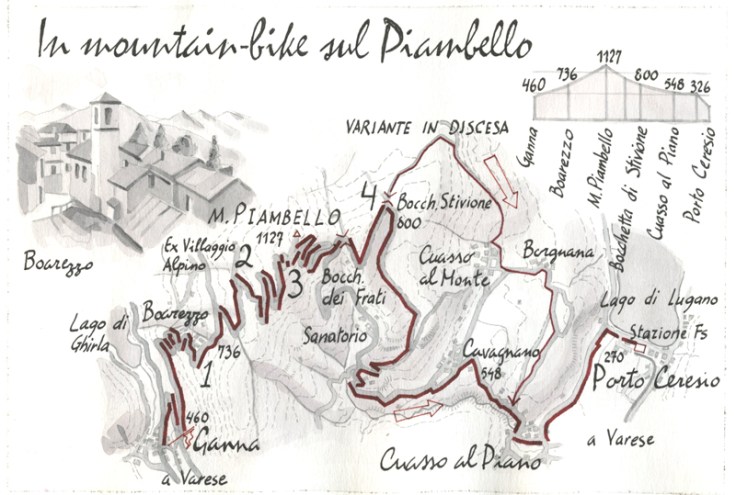 In mountain-bike sul Piambello
460
736
1127
800
548
326
Ganna
Boarezzo
M. Piambello
Bocchetta di Stivione
Cuasso al Piano
Porto Ceresio
VARIANTE IN DISCESA
Boarezzo
M. PIAMBELLO
1127
4
Bocch. Stivione
800
Ex Villaggio
Alpino
2
3
Bocch.
dei Frati
Cuasso
al Monte
Borgnana
Lago di
Ghirla
Boarezzo
1
736
Sanatorio
Cavagnano
548
Lago di Lugano
Stazione Fs
270
Porto Ceresio
460
Ganna
a Varese
Cuasso al Piano
a Varese